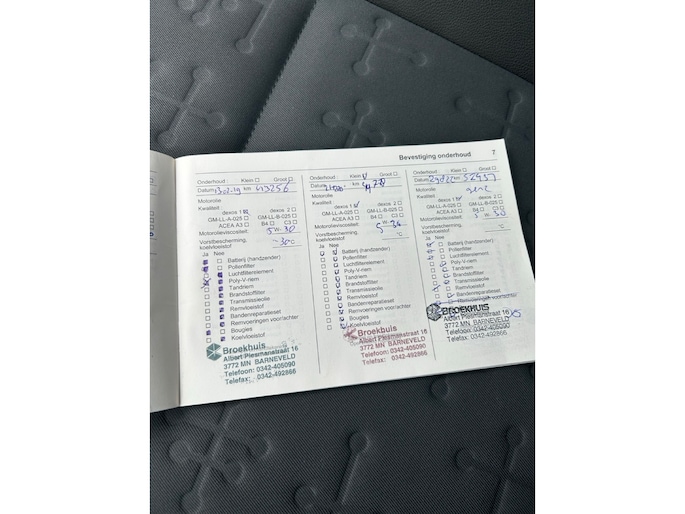 Bevestiging onderhoud 7
Onderhoud: Klein Groot
Datum km 43256
Motorolie
Kwaliteit:
dexos 1 dexos 2
GM-LL-A-025 GM-LL-B-025
ACEA A3 B4 C3
Motorolieviscositeit: 5W-30
Vorstbescherming, koelvloeistof -30°C
Ja Nee
Batterij (handzender)
Pollenfilter
Luchtfilterelement
Poly-V-riem
Tandriem
Brandstoffilter
Transmissieolie
Remvloeistof
Bandenreparatieset
Remvoeringen voor/achter
Bougies
Koelvloeistof
Broekhuis
Albert Plesmanstraat 16
3772 MN BARNEVELD
Telefoon: 0342-405090
Telefax: 0342-492866
Onderhoud: Klein Groot
Datum km
Motorolie
Kwaliteit:
dexos 1 dexos 2
GM-LL-A-025 GM-LL-B-025
ACEA A3 B4 C3
Motorolieviscositeit: 5W-30
Vorstbescherming, koelvloeistof °C
Ja Nee
Batterij (handzender)
Pollenfilter
Luchtfilterelement
Poly-V-riem
Tandriem
Brandstoffilter
Transmissieolie
Remvloeistof
Bandenreparatieset
Remvoeringen voor/achter
Bougies
Koelvloeistof
Broekhuis
Albert Plesmanstraat 16
3772 MN BARNEVELD
Telefoon: 0342-405090
Telefax: 0342-492866
Onderhoud: Klein Groot
Datum km 52957
Motorolie
Kwaliteit:
dexos 1 dexos 2
GM-LL-A-025 GM-LL-B-025
ACEA A3 B4 C3
Motorolieviscositeit: 5W-30
Vorstbescherming, koelvloeistof °C
Ja Nee
Batterij (handzender)
Pollenfilter
Luchtfilterelement
Poly-V-riem
Tandriem
Brandstoffilter
Transmissieolie
Remvloeistof
Bandenreparatieset
Remvoeringen voor/achter
BROEKHUIS
Albert Plesmanstraat 16
3772 MN BARNEVELD
Telefoon: 0342-405090
Telefax: 0342-492866